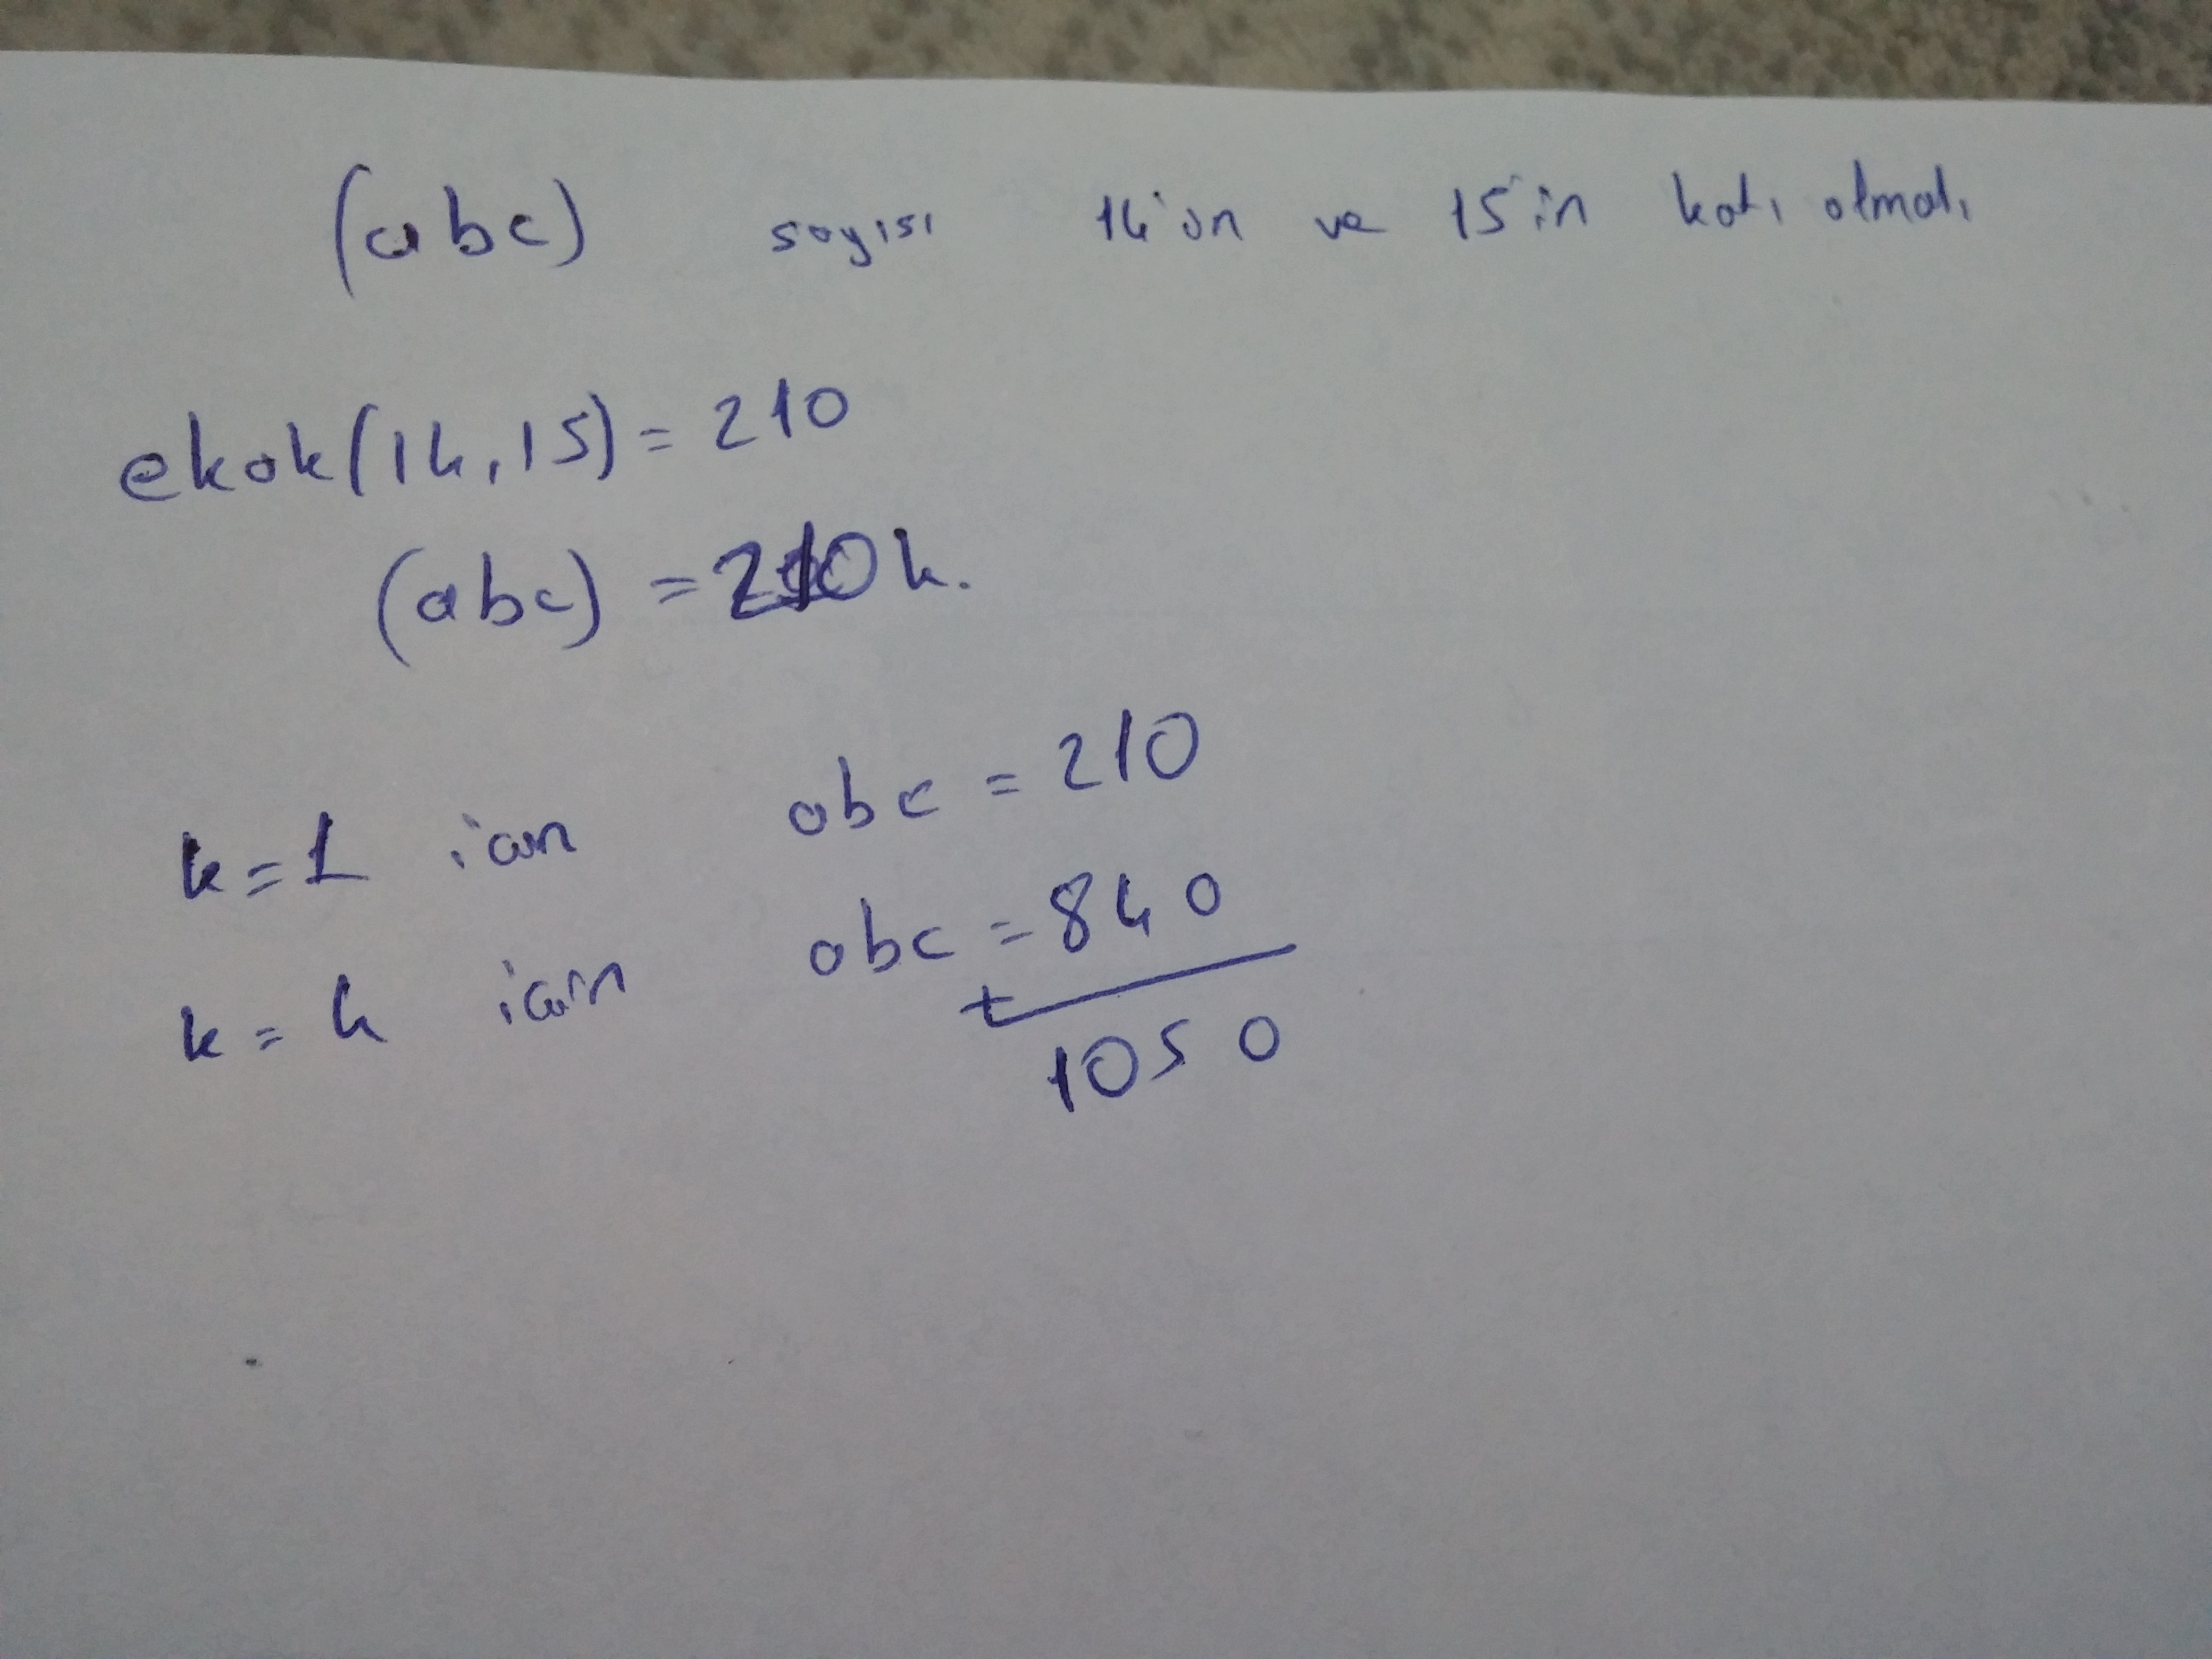 (abc) sayısı 14'ün ve 15'in katı olmalı
ekok(14,15) = 210
(abc) = 210k.
k=1 için abc = 210
k=4 için abc = 840
+
1050